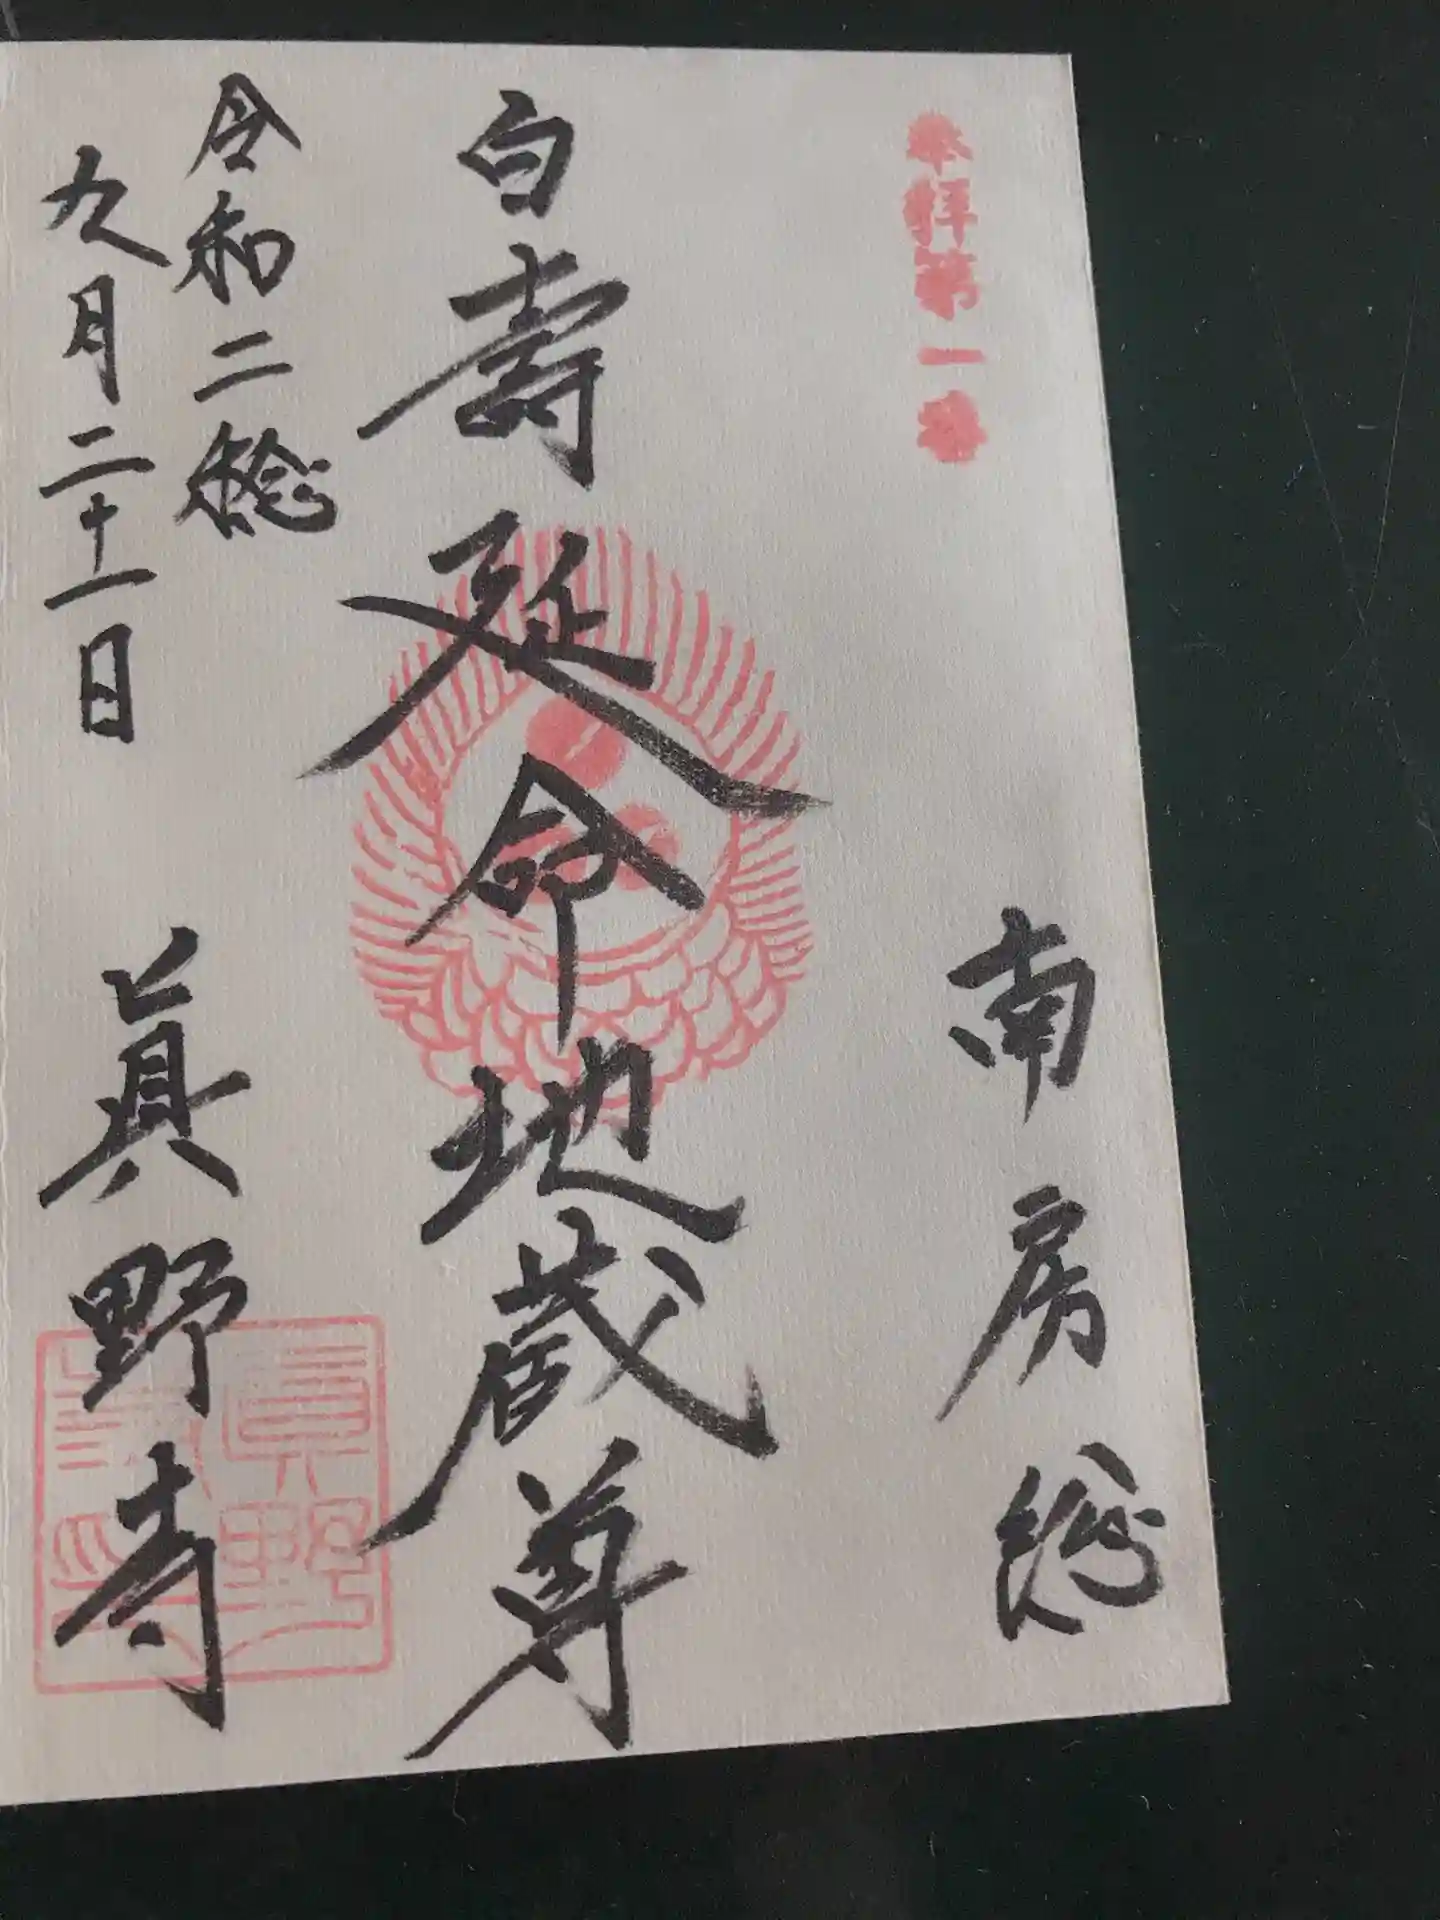 奉拝第一番
南房總
白壽延命地蔵尊
令和二稔
九月二十一日
眞野寺